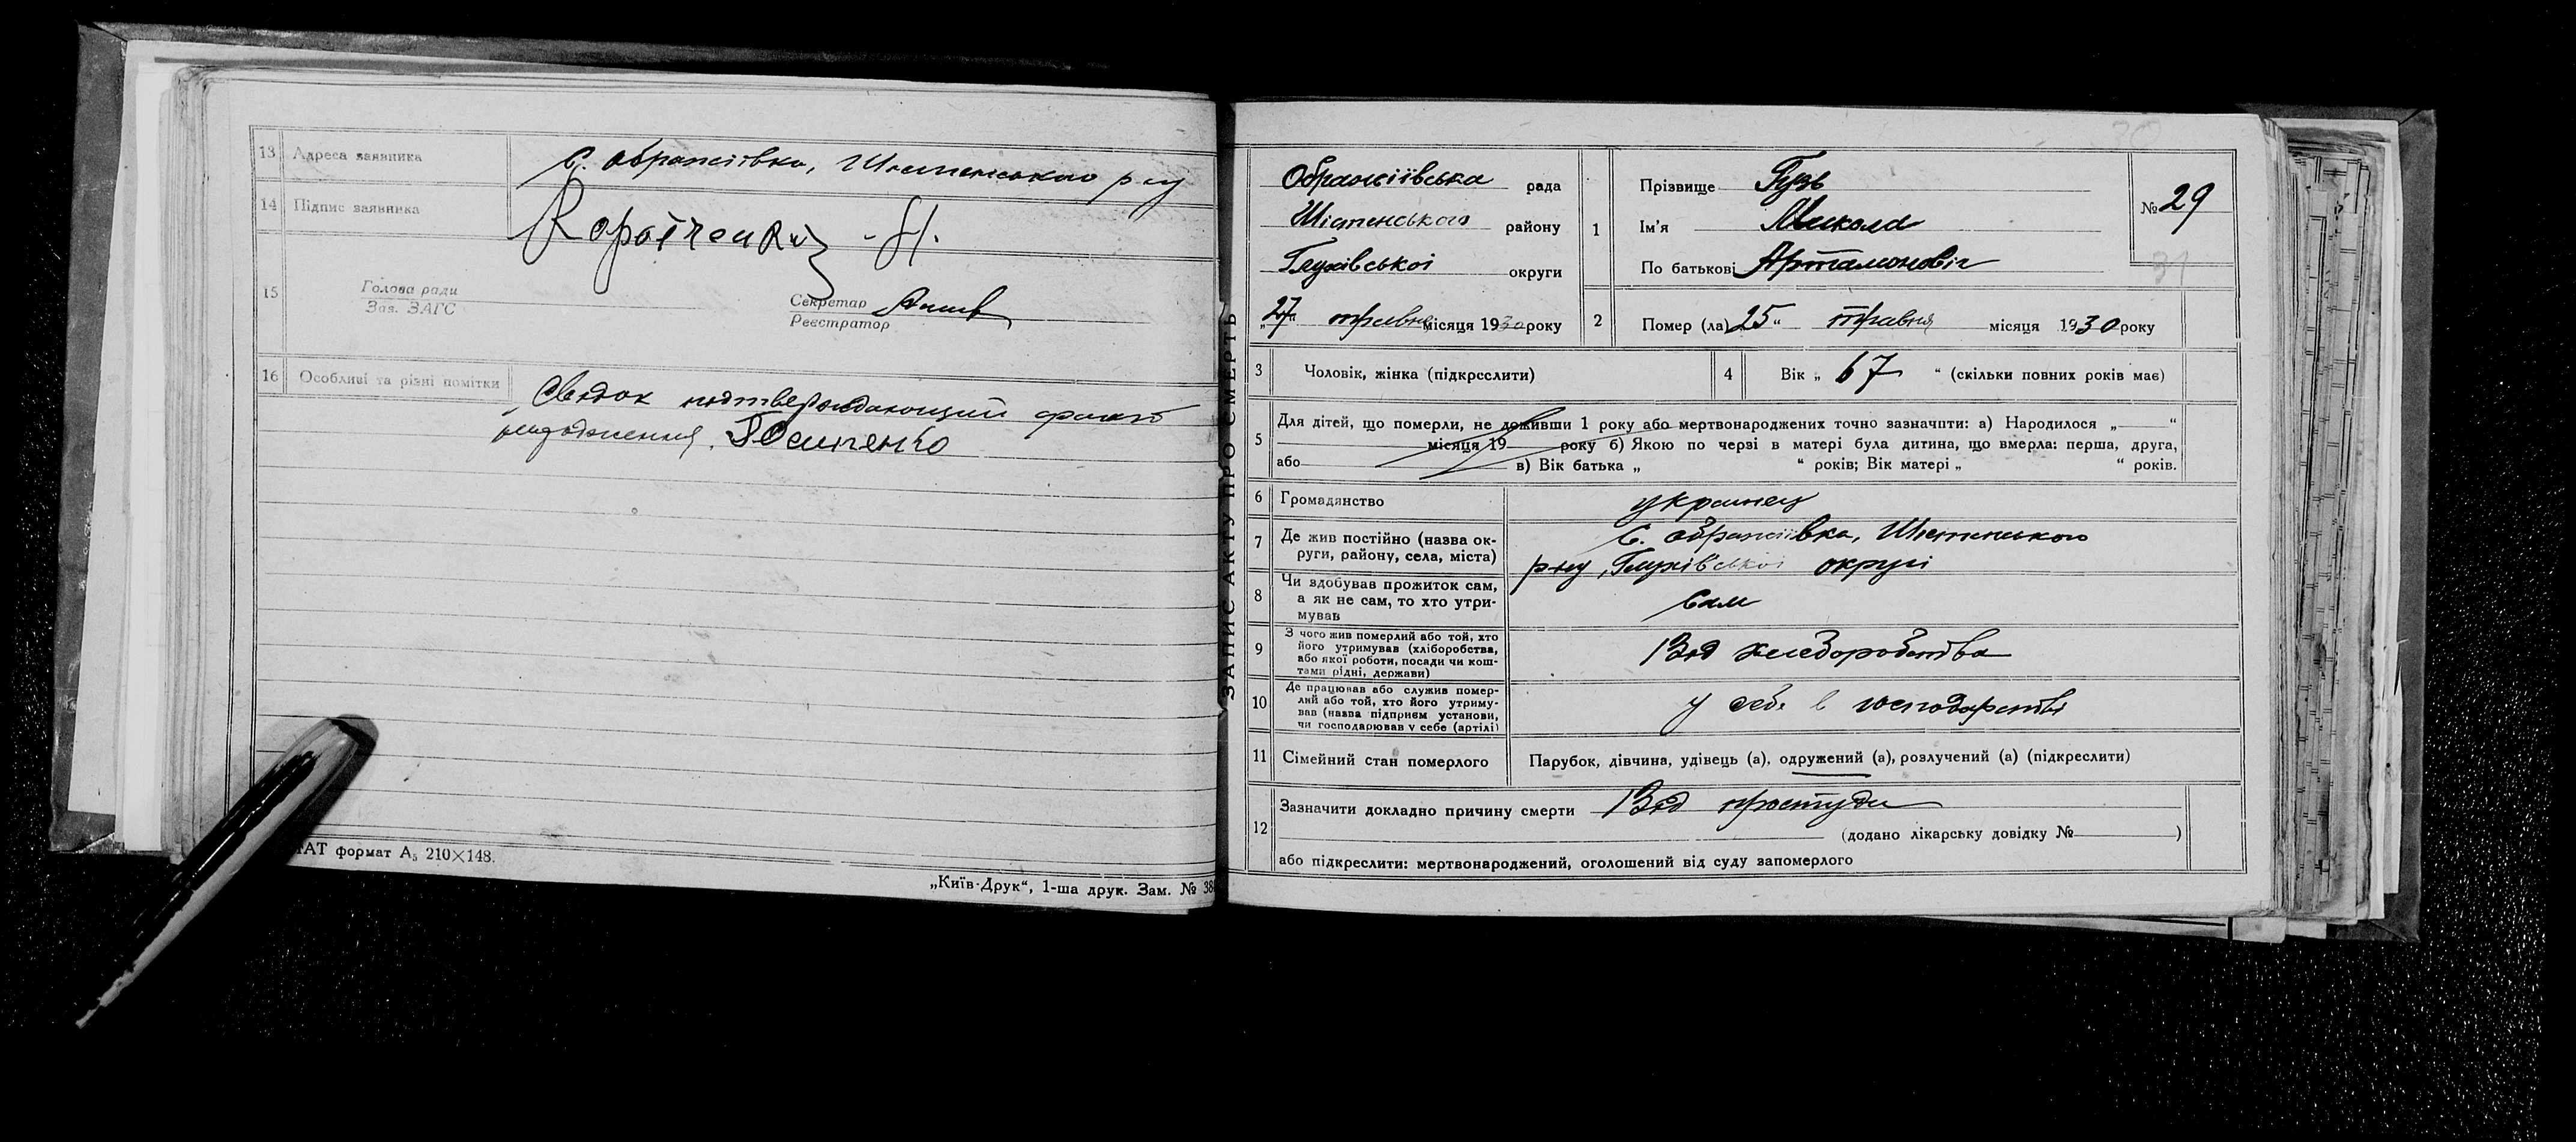 13 Адреса заявника С. Ображіївка, Шостенського р-ну
14 Підпис заявника
15 Голова ради
Зав. ЗАГС
Секретар
Реєстратор
16 Особливі та різні помітки
Свідок подтверждающий факт
ТАТ формат А₅ 210×148.
„Київ-Друк“, 1-ша друк. Зам. № 38
ЗАПИС АКТУ ПРО СМЕРТЬ
30
Ображіївська рада
Шостенського району
Глухівської округи
„27“ травня місяця 1930 року
1 Прізвище Гузь
Ім'я Микола
По батькові Артамоновіч
№ 29
31
2 Помер (ла) 25“ травня місяця 1930 року
3 Чоловік, жінка (підкреслити)
4 Вік „ 67 “ (скільки повних років має)
5 Для дітей, що померли, не доживши 1 року або мертвонароджених точно зазначити: а) Народилося „ “
місяця 19 року б) Якою по черзі в матері була дитина, що вмерла: перша, друга,
або в) Вік батька „ “ років; Вік матері „ “ років.
6 Громадянство украінец
7 Де жив постійно (назва ок-
руги, району, села, міста)
С. Ображіївка, Шостенського
р-ну, Глухівської округі
8 Чи здобував прожиток сам,
а як не сам, то хто утри-
мував
Сам
9 З чого жив померлий або той, хто
його утримував (хліборобства,
або якої роботи, посади чи кош-
тами рідні, держави)
Від хлеборобства
10 Де працював або служив помер-
лий або той, хто його утриму-
вав (назва підприєм установи,
чи господарював у себе (артілі)
у себе в господарстві
11 Сімейний стан померлого Парубок, дівчина, удівець (а), одружений (а), розлучений (а) (підкреслити)
12 Зазначити докладно причину смерти Від простуди
(додано лікарську довідку № )
або підкреслити: мертвонароджений, оголошений від суду запомерлого